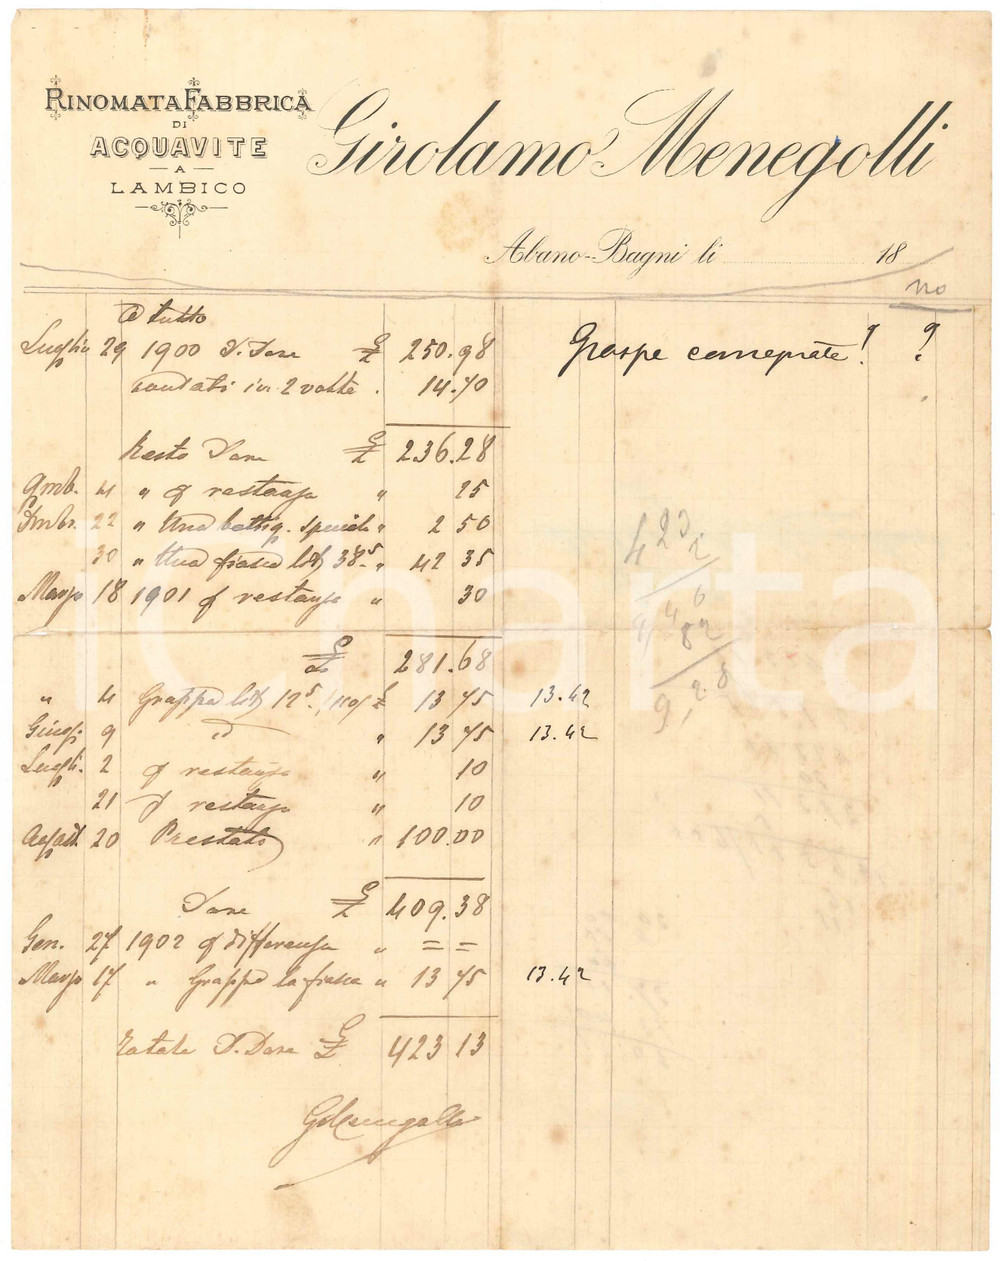 RINOMATA FABBRICA
DI
ACQUAVITE
A
LAMBICO
Girolamo Menegolli
Abano-Bagni li 18
no
tutto
Luglio 29 1900 D. Dare £ 250.98
Graspe consegnate! ?
in 2 volte . 14.70
Resto Dare £ 236.28
9mb. 4 " restanza " 25
Xmbr. 22 " Una bottig. speciale " 2 50
30 " Una fiasca lit 38.5 " 42 35
Marzo 18 1901 restanza " 30
£ 281.68
" 4 Grappa lit 12.5 £ 13 75 13.42
Giug. 9 id " 13 75 13.42
Lugli. 2 restanza " 10
21 restanza " 10
Agost. 20 Prestato " 100.00
Dare £ 409.38
Gen. 27 1902 differenza " = =
Marzo 17 " Grappa la fiasca " 13 75 13.42
Totale D. Dare £ 423 13
GMenegolli
423
6
482
9,28
icharta